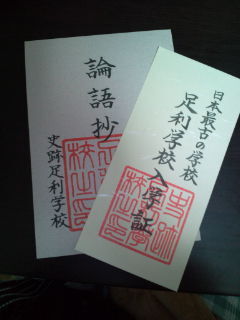 論語抄
史跡足利学校
日本最古の学校
足利学校入学証